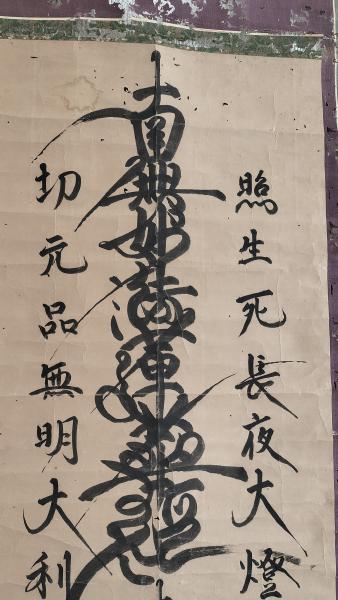 照生死長夜大燈
南無妙法蓮華經
切元品無明大利